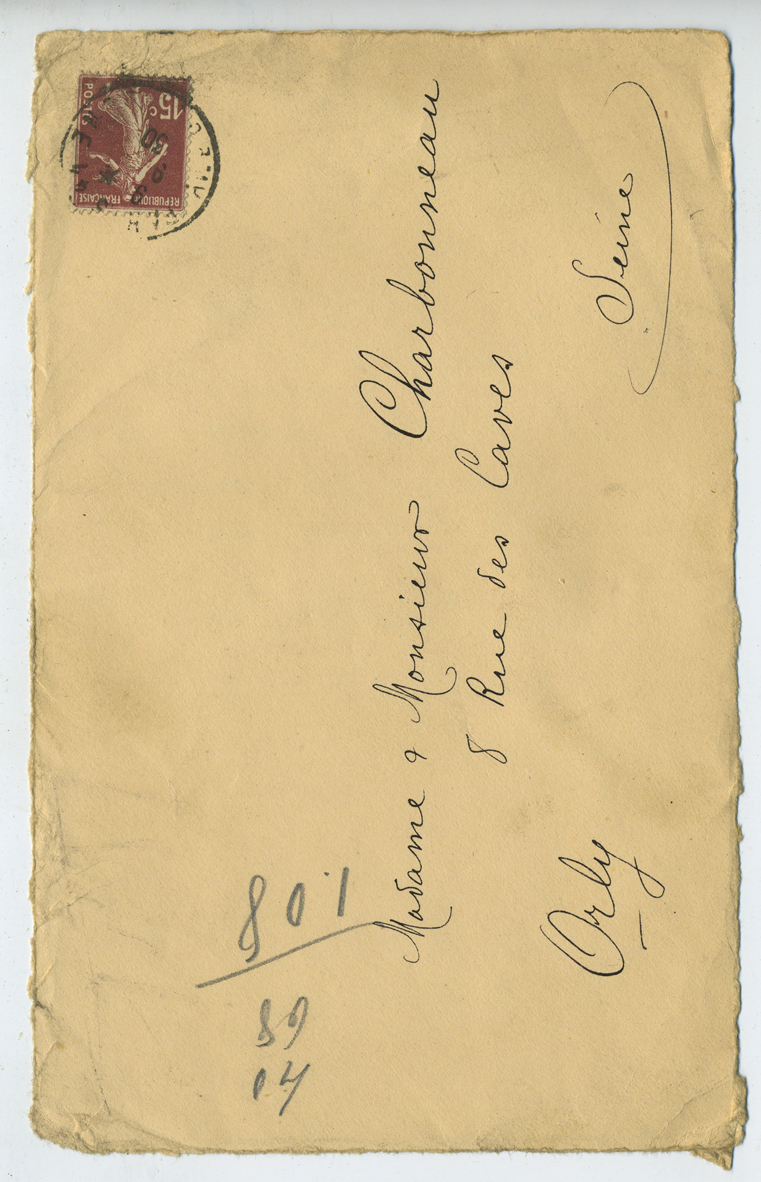 15c
POSTES
REPUBLIQUE FRANÇAISE
Madame & Monsieur Charbonneau
8 Rue des Caves
Orly Seine
801
89
14